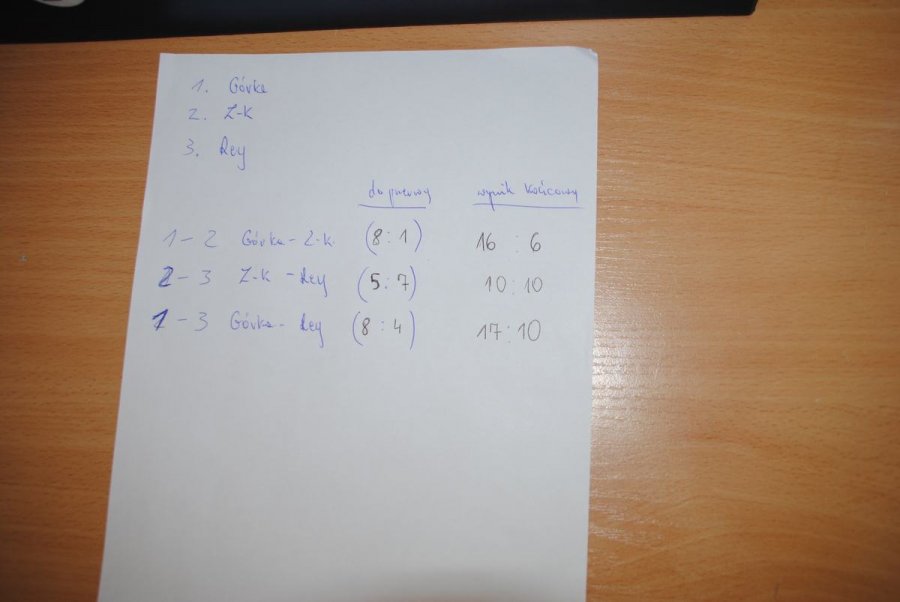 1. Górka
2. Z-K
3. Rey
do przerwy wynik końcowy
1-2 Górka - Z-K. (8:1) 16:6
2-3 Z-K - Rey (5:7) 10:10
1-3 Górka - Rey (8:4) 17:10